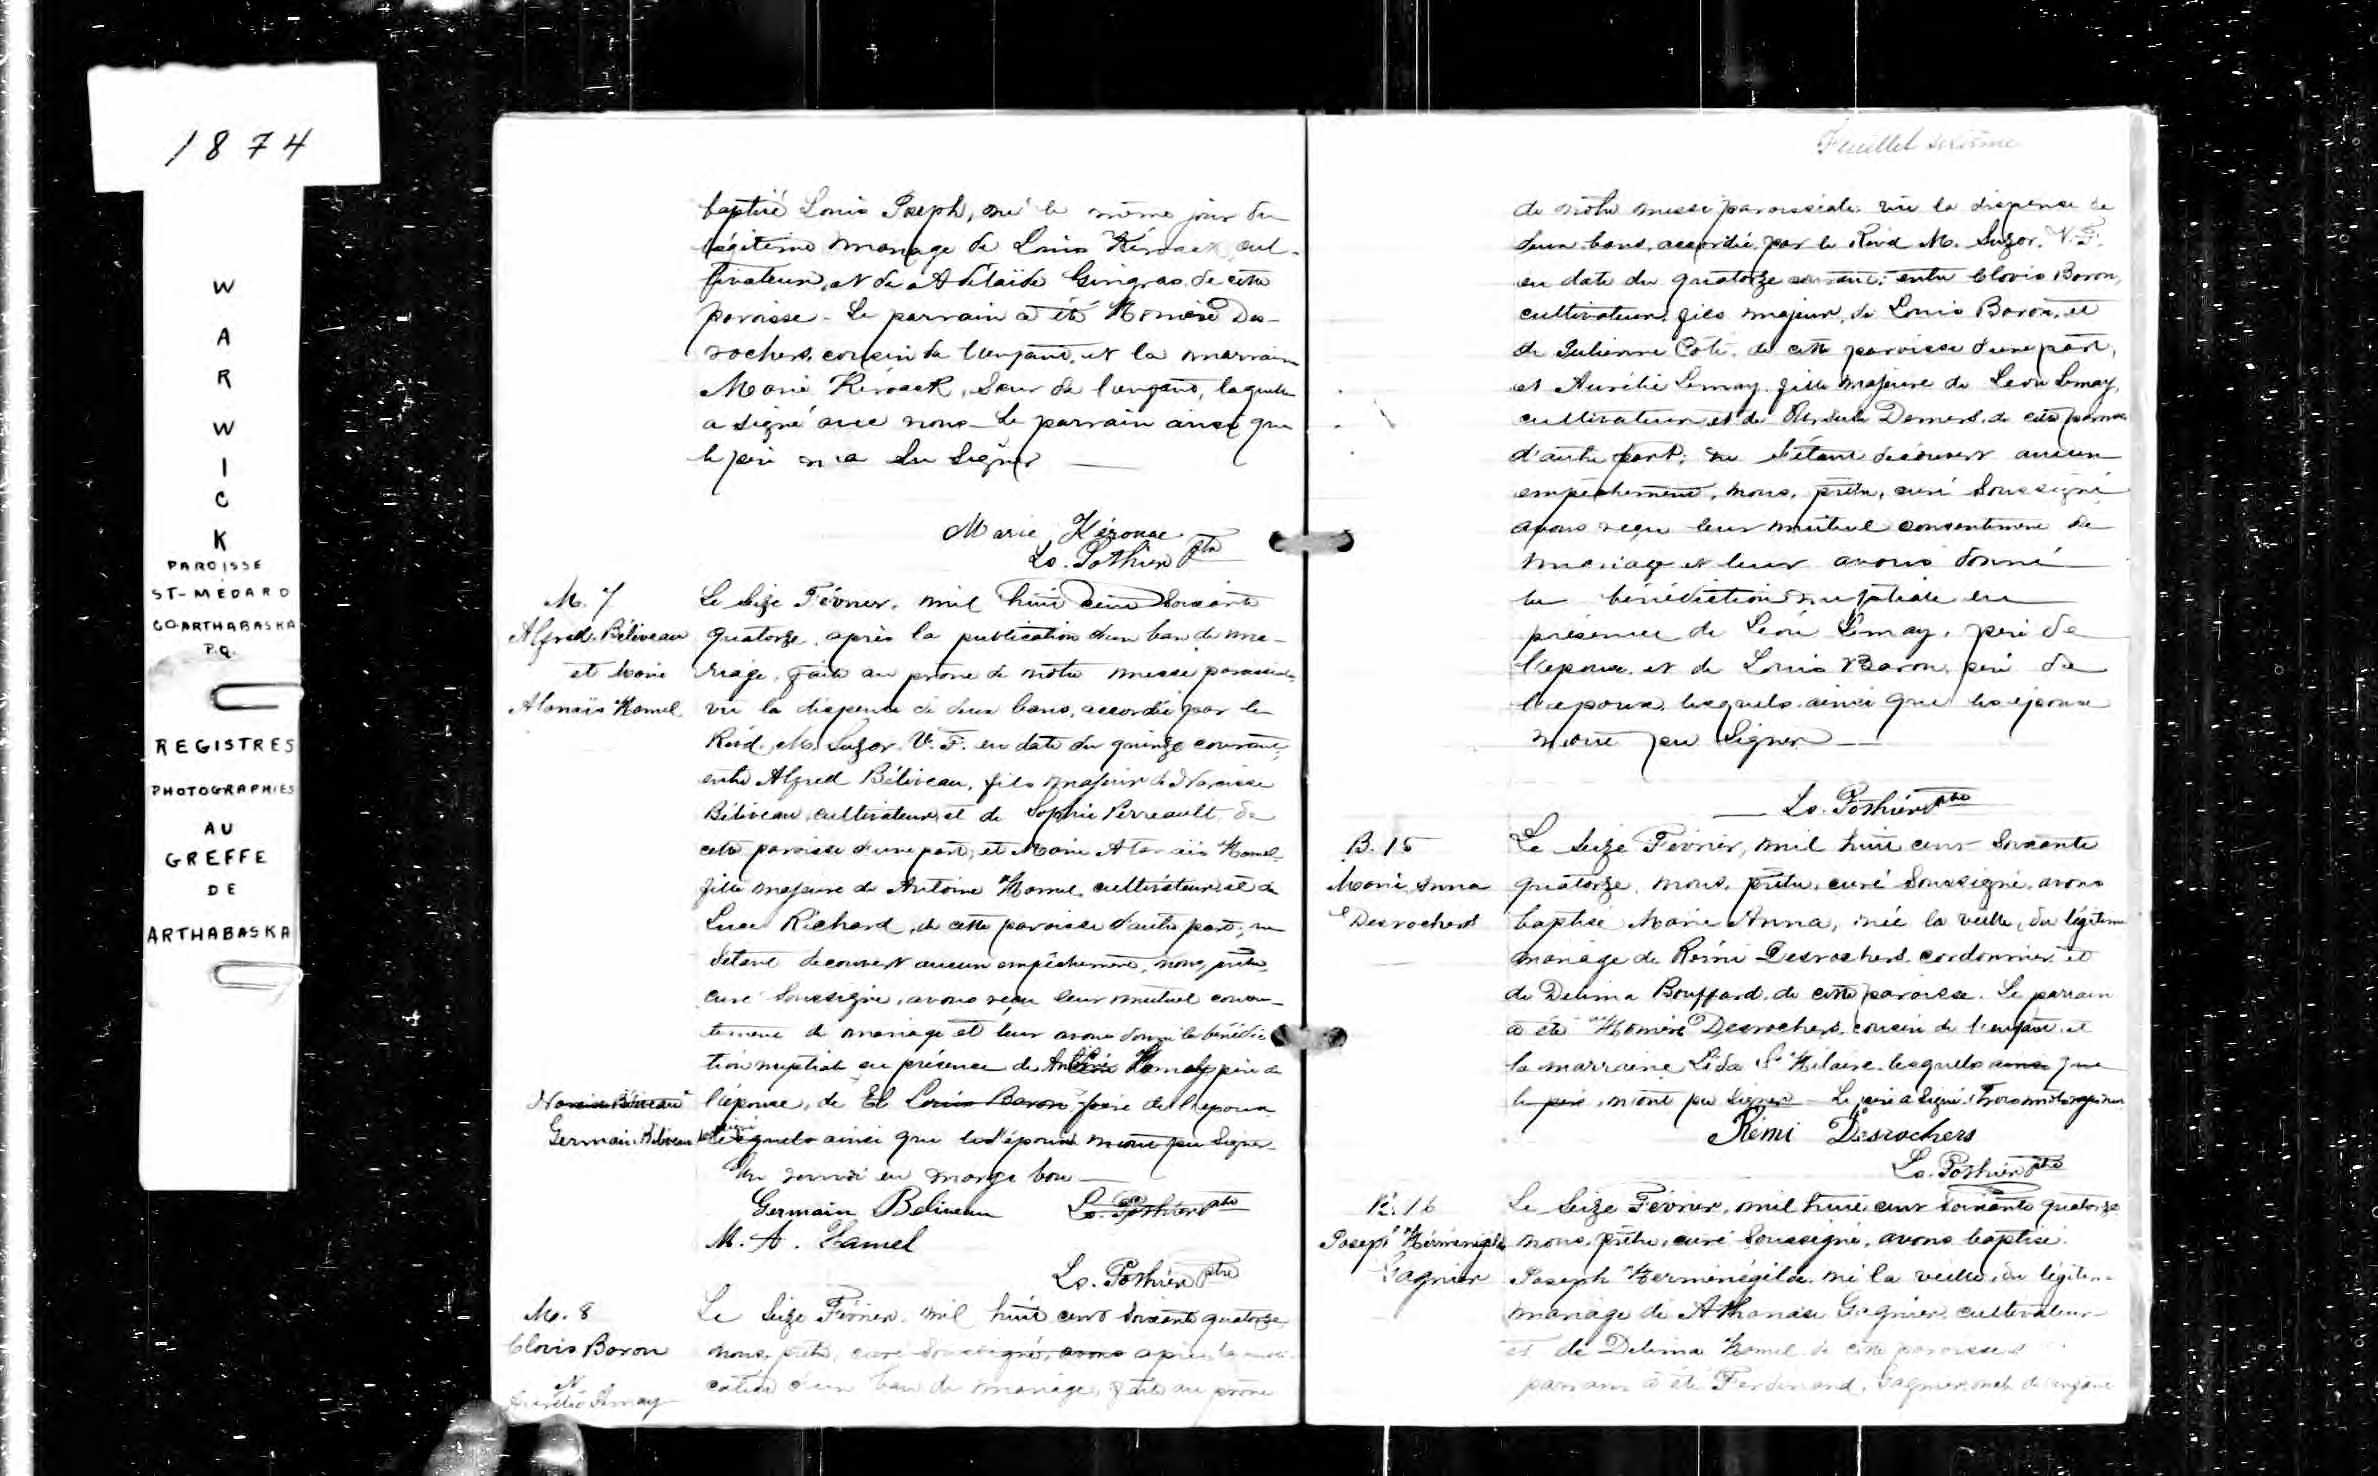 1874
W
A
R
W
I
C
K
PAROISSE
ST-MÉDARD
CO ARTHABASKA
P.Q.
REGISTRES
PHOTOGRAPHIES
AU
GREFFE
DE
ARTHABASKA
baptisé Louis Joseph, né le même jour du
légitime mariage de Louis Kéroack, cul-
tivateur, et de Adélaïde Gingras de cette
paroisse - Le parrain a été Homère Des-
rochers, cousin de l'enfant, et la marraine
Marie Kéroack, Sœur de l'enfant, laquelle
a signé avec nous - Le parrain ainsi que
le père n'a su Signer
Marie Kérouac
Ls. Pothier ptre
M. 7
Alfred Béliveau
et Marie
Atanaïs Hamel
Le Seize Février, mil huit cent Soixante
quatorze, après la publication d'un ban de ma-
riage, faite au prône de notre messe paroissiale
vu la dispense de deux bans, accordée par le
Révd. M. Suzor, V. F. en date du quinze courant,
entre Alfred Béliveau, fils majeur de Narcisse
Béliveau, cultivateur, et de Sophie Perreault, de
cette paroisse d'une part, et Marie Atanaïs Hamel
fille majeure de Antoine Hamel, cultivateur et de
Luce Richard, de cette paroisse d'autre part; ne
S'étant découvert aucun empêchement, nous, prêtre,
curé Soussigné, avons reçu leur mutuel consen-
tement de mariage et leur avons donné la bénédic
tion nuptiale en présence de Hamel père de
Narcisse Béliveau
Germain Béliveau
l'épouse, de Et Louis Baron père de l'époux
lesquels ainsi que les épous n'ont pu Signer
Un renvoi en marge bon
Germain Beliveau Ls. Pothier ptre
M. A. Hamel
Ls. Pothier ptre
M. 8
Clovis Baron
et
Aurélie Lemay
Le Seize Février, mil huit cent Soixante quatorze
nous, prêtre, curé Soussigné, avons après la publi-
cation d'un ban de mariage, faite au prône
Feuillet
de notre messe paroissiale vu la dispense de
deux bans, accordée par le Révd M. Suzor, V. F.
en date du quatorze courant; entre Clovis Baron,
cultivateur, fils majeur, de Louis Baron, et
de Julienne Coté, de cette paroisse d'une part,
et Aurélie Lemay, fille majeure de Léon Lemay,
cultivateur et de Ursule Demers, de cette paroisse
d'autre part; ne S'étant découvert aucun
empêchement, nous, prêtre, curé Soussigné
avons reçu leur mutuel consentement de
mariage et leur avons donné
la bénédiction nuptiale en
présence de Léon Lemay, père de
l'épouse et de Louis Baron, père de
l'époux, lesquels ainsi que les époux
n'ont pu Signer
Ls. Pothier ptre
B. 15
Marie Anna
Desrochers
Le Seize Février, mil huit cent Soixante
quatorze, nous, prêtre, curé Soussigné, avons
baptisé Marie Anna, née la veille, du légitime
mariage de Rémi Desrochers, cordonnier et
de Delima Bouffard, de cette paroisse. Le parrain
a été Homère Desrochers, cousin de l'enfant et
la marraine Lida St Hilaire, lesquels ainsi que
le père, n'ont pu Signer - Le père a Signé. Trois mots rayés nuls
Rémi Desrochers
Ls. Pothier ptre
B. 16
Joseph Herménégilde
Gagnier
Le Seize Février, mil huit cent Soixante quatorze
nous, prêtre, curé Soussigné, avons baptisé
Joseph Herménégilde, né la veille, du légitime
mariage de Athanase Gagnier, cultivateur
et de Delima Hamel de cette paroisse
parrain a été Ferdinand Gagnier oncle de l'enfant